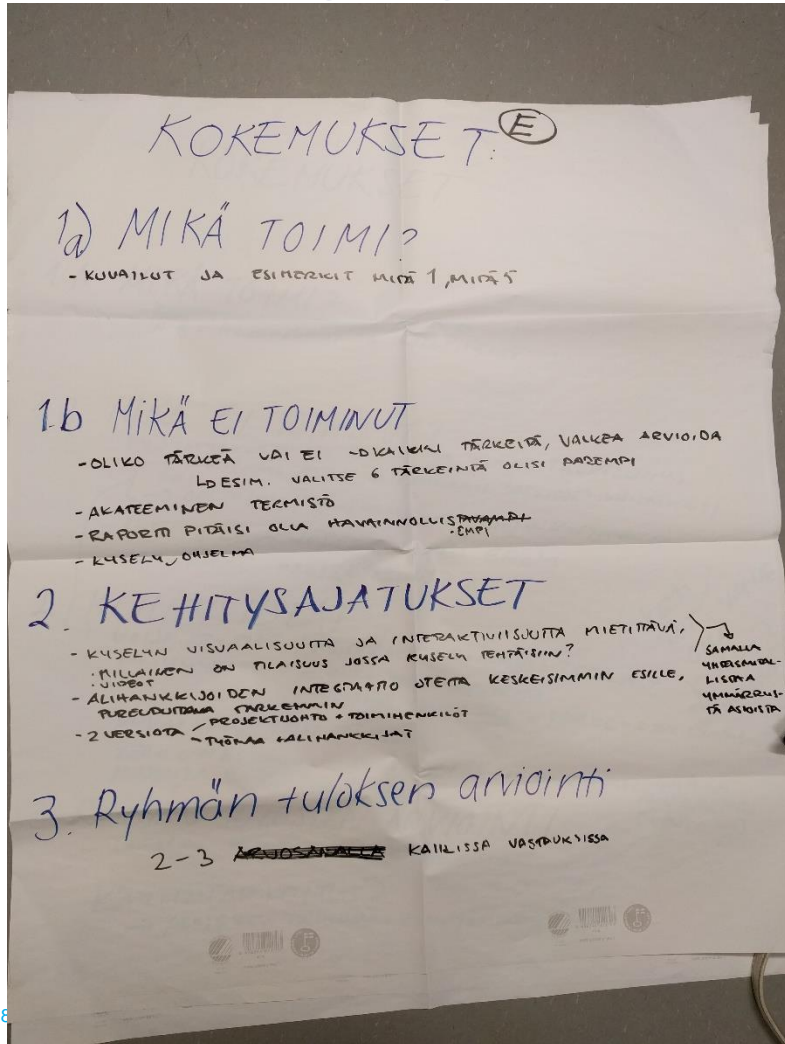 KOKEMUKSET: E
1a) MIKÄ TOIMI?
- KUVAILUT JA ESIMERKIT MITÄ 1, MITÄ 5
1.b MIKÄ EI TOIMINUT
- OLIKO TÄRKEÄ VAI EI → KAIKKI TÄRKEITÄ, VAIKEA ARVIOIDA
↳ ESIM. VALITSE 6 TÄRKEINTÄ OLISI PAREMPI
- AKATEEMINEN TERMISTÖ
- RAPORTTI PITÄISI OLLA HAVAINNOLLISTAVAMPI
- EMPI
- KYSELY, OHJELMA
2. KEHITYSAJATUKSET
- KYSELYN VISUAALISUUTTA JA INTERAKTIIVISUUTTA MIETITTÄVÄ,
. MILLAINEN ON TILAISUUS JOSSA KYSELY TEHTÄISIIN?
. VIDEOT
- ALIHANKKIJOIDEN INTEGRAATIO OTETTA KESKEISIMMIN ESILLE,
PUREUDUTTAVA TARKEMMIN
- 2 VERSIOTA - PROJEKTIJOHTO + TOIMIHENKILÖT
- TYÖMAA + ALIHANKKIJAT
→ SAMALLA
YHTEISMITAL-
LISTAA
YMMÄRRYS-
TÄ ASIOISTA
3. Ryhmän tuloksen arviointi
2-3 KAIKISSA VASTAUKSISSA
8